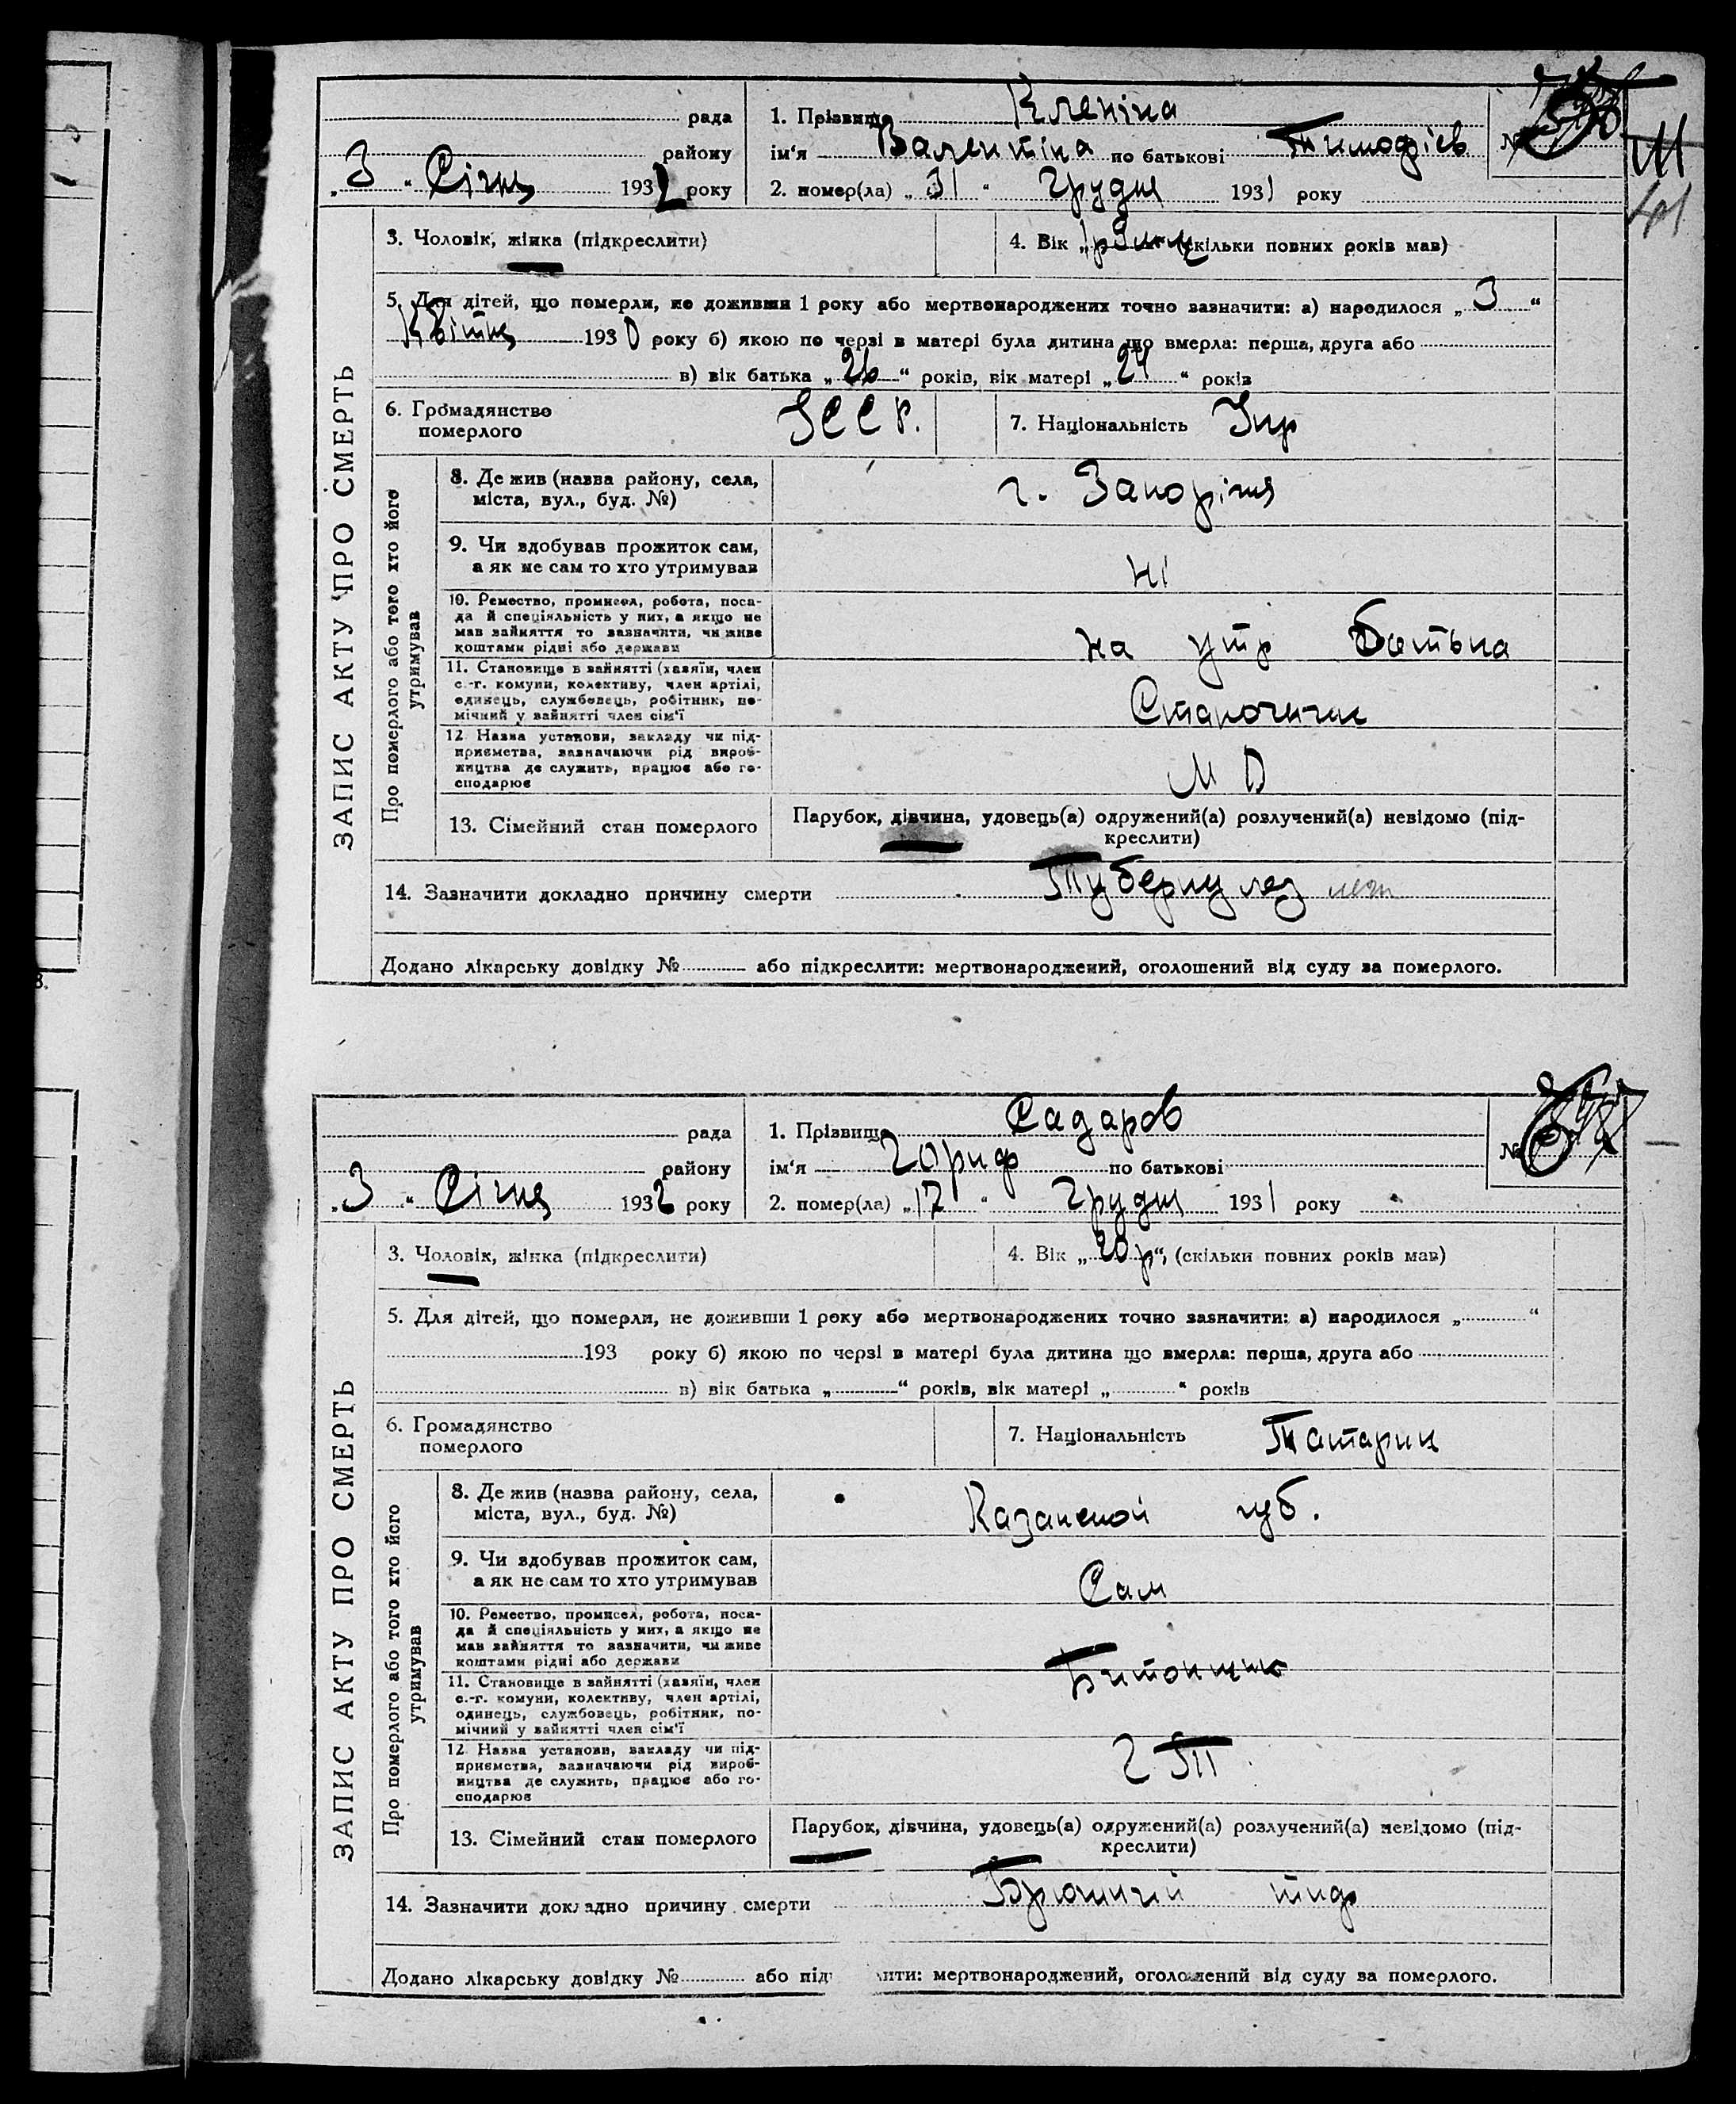 рада
району
„ 3 “ Січня 1932 року
1. Прізвище Кленіна
ім‘я Валентіна по батькові Тимофіїв
№
2. помер(ла) „ 31 “ Грудня 1931 року
3. Чоловік, жінка (підкреслити)
4. Вік „ 1р 9 м “ (скільки повних років мав)
5. Для дітей, що померли, не доживши 1 року або мертвонароджених точно зазначити: а) народилося „ 3 “
Квітня 1930 року б) якою по черзі в матері була дитина що вмерла: перша, друга або
в) вік батька „ 26 “ років, вік матері „ 24 “ років
6. Громадянство
померлого
УССР.
7. Національність Укр
ЗАПИС АКТУ ПРО СМЕРТЬ
Про померлого або того хто його
утримував
8. Де жив (назва району, села,
міста, вул., буд. №)
г. Запоріжя
9. Чи здобував прожиток сам,
а як не сам то хто утримував
Ні
10. Ремество, промисел, робота, поса-
да й спеціяльність у них, а якщо не
мав зайняття то зазначити, чи живе
коштами рідні або держави
на утр батька
11. Становище в зайнятті (хазяїн, член
с.-г. комуни, колективу, член артілі,
одинець, службовець, робітник, по-
мічний у зайнятті член сім‘ї
12 Назва установи, закладу чи під-
приємства, зазначаючи рід вироб-
ництва де служить, працює або го-
сподарює
М D
13. Сімейний стан померлого
Парубок, дівчина, удовець(а) одружений(а) розлучений(а) невідомо (під-
креслити)
14. Зазначити докладно причину смерти Туберкулез лег
Додано лікарську довідку № або підкреслити: мертвонароджений, оголошений від суду за померлого.
рада
району
„ 3 “ Січня 1932 року
1. Прізвище Садаров
ім‘я по батькові
№
2. помер(ла) „ 17 “ Грудня 1931 року
3. Чоловік, жінка (підкреслити)
4. Вік „ 20 р “ (скільки повних років мав)
5. Для дітей, що померли, не доживши 1 року або мертвонароджених точно зазначити: а) народилося „ “
193 року б) якою по черзі в матері була дитина що вмерла: перша, друга або
в) вік батька „ “ років, вік матері „ “ років
6. Громадянство
померлого
7. Національність Татарин
ЗАПИС АКТУ ПРО СМЕРТЬ
Про померлого або того хто його
утримував
8. Де жив (назва району, села,
міста, вул., буд. №)
Казанской губ.
9. Чи здобував прожиток сам,
а як не сам то хто утримував
Сам
10. Ремество, промисел, робота, поса-
да й спеціяльність у них, а якщо не
мав зайняття то зазначити, чи живе
коштами рідні або держави
Битонщик
11. Становище в зайнятті (хазяїн, член
с.-г. комуни, колективу, член артілі,
одинець, службовець, робітник, по-
мічний у зайнятті член сім‘ї
12 Назва установи, закладу чи під-
приємства, зазначаючи рід вироб-
ництва де служить, працює або го-
сподарює
13. Сімейний стан померлого
Парубок, дівчина, удовець(а) одружений(а) розлучений(а) невідомо (під-
креслити)
14. Зазначити докладно причину смерти Брюшний тиф
Додано лікарську довідку № або мертвонароджений, оголошений від суду за померлого.